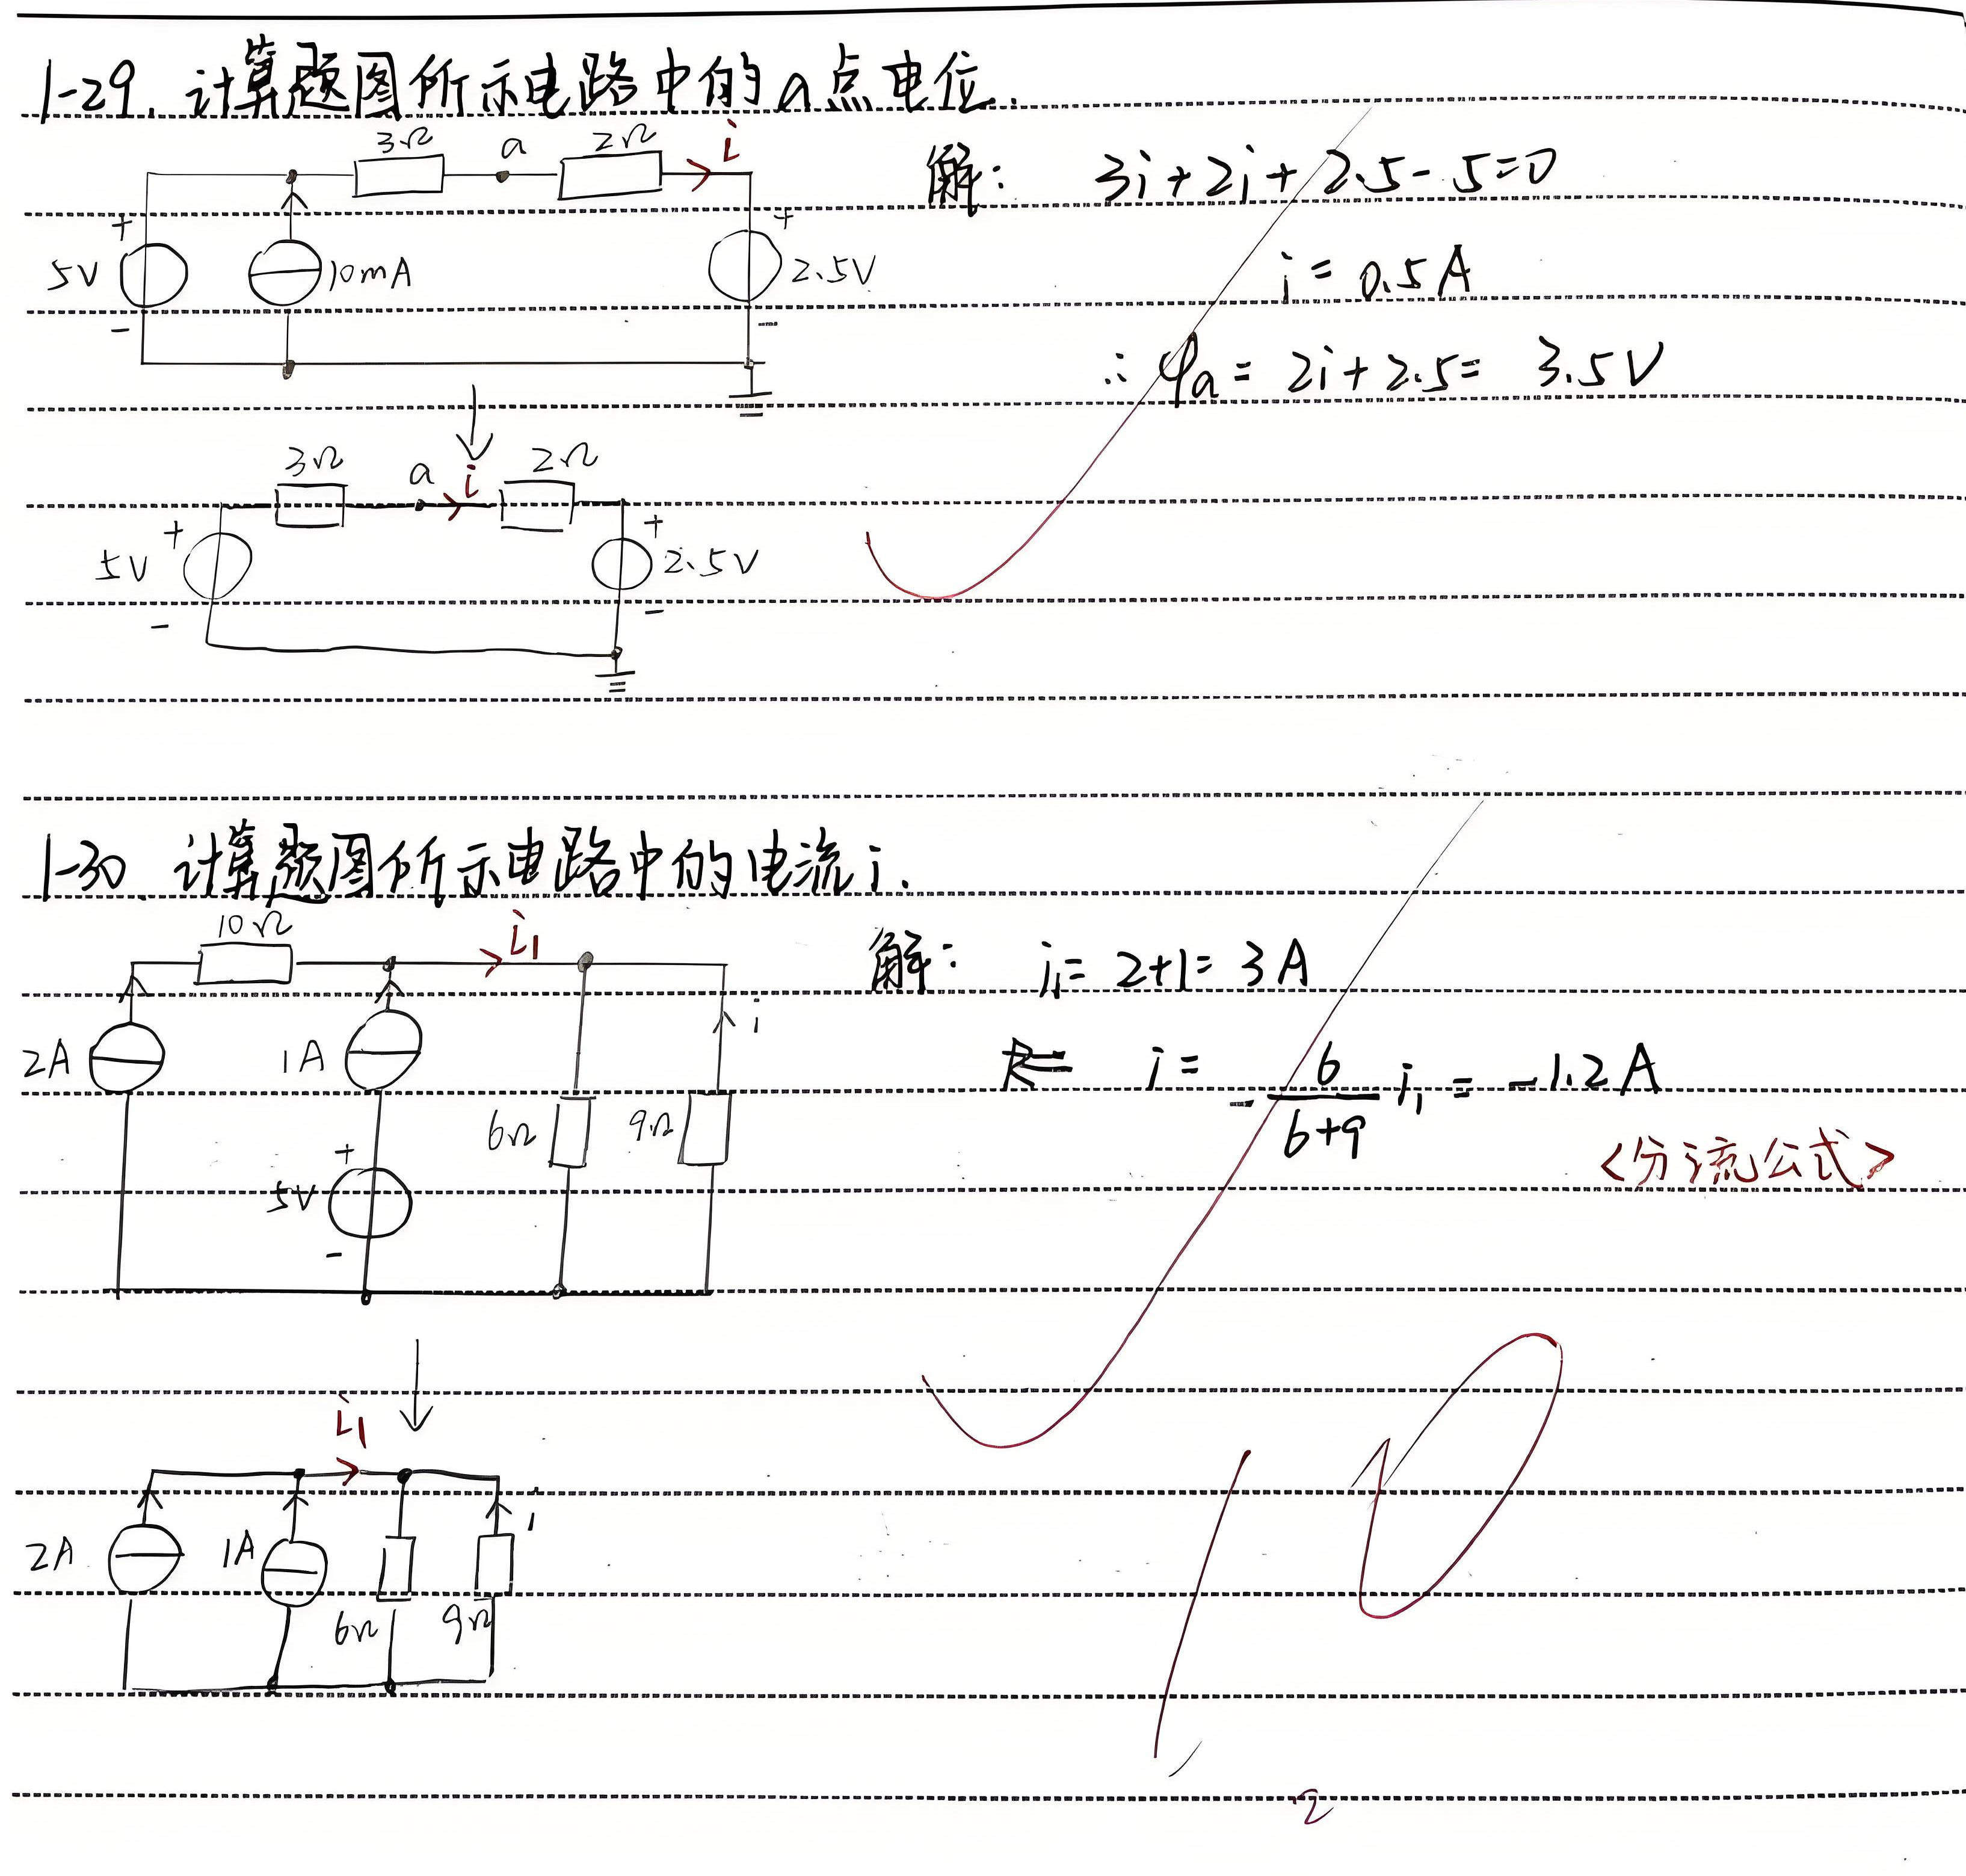 1-29. 计算题图所示电路中的a点电位.
3Ω a 2Ω i
解: 3i+2i+2.5-5=0
+ +
5V 10mA 2.5V
- -
i = 0.5A
∴ φa = 2i+2.5= 3.5V
3Ω a i 2Ω
+ +
5V 2.5V
- -
1-30. 计算题图所示电路中的电流i.
10Ω i1
解: i1= 2+1= 3A
2A 1A i
i = - 6/(6+9) i1 = -1.2A
6Ω 9Ω
<分流公式>
+
5V
-
i1
i
2A 1A
6Ω 9Ω
10
2